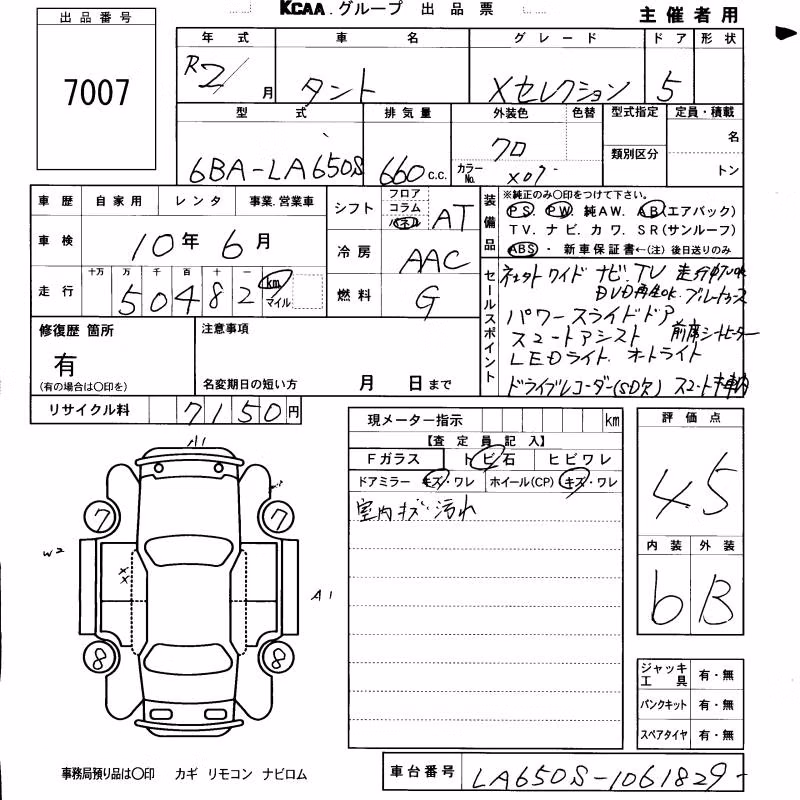 KCAA.グループ 出品票
主催者用
出品番号
7007
年式 車名 グレード ドア 形状
R2/ 月 タント Xセレクション 5
型式 排気量 外装色 色替 型式指定 定員・積載
名
類別区分
トン
6BA-LA650S 660 c.c. クロ
カラーNo. X07
車歴 自家用 レンタ 事業.営業車
車検 10年 6月
走行 十万 万 千 百 十 一
50482 km マイル
シフト フロア コラム パネル AT
冷房 AAC
燃料 G
装備品
※純正のみ○印をつけて下さい。
PS. PW. 純AW. AB(エアバック)
TV. ナビ. カワ. SR(サンルーフ)
ABS・ 新車保証書←(注) 後日送りのみ
セールスポイント
ワイド ナビ.TV
DVD再生OK.
パワースライドドア
スマートアシスト 前席シートヒーター
LEDライト. オートライト
ドライブレコーダー(SD欠)
修復歴 箇所
有
(有の場合は○印を)
注意事項
名変期日の短い方 月 日まで
リサイクル料 7150円
現メーター指示 km
【査定員記入】
Fガラス トビ石 ヒビワレ
ドアミラー キズ・ワレ ホイール(CP) キズ・ワレ
室内キズ・汚れ
評価点
45
内装 外装
b B
A1
7 7
W2
××
A1
8 8
ジャッキ工具 有・無
パンクキット 有・無
スペアタイヤ 有・無
事務局預り品は○印 カギ リモコン ナビロム
車台番号 LA650S-1061829-